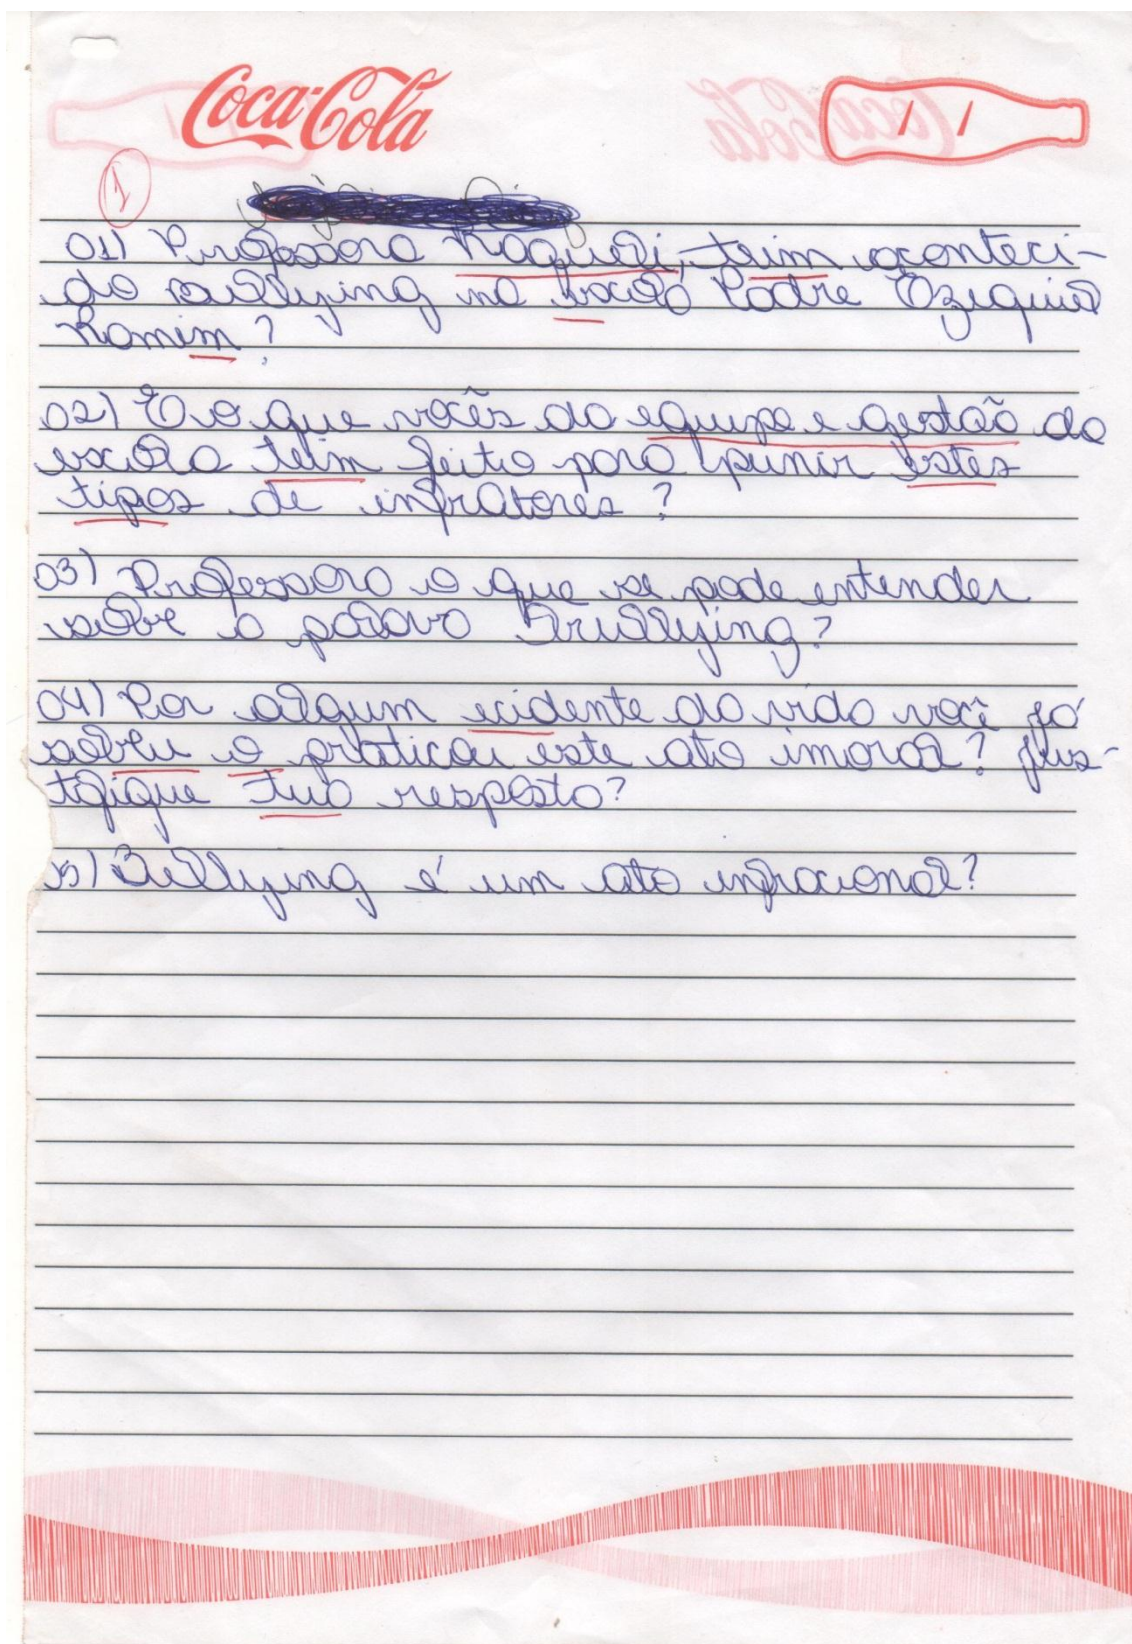 Coca-Cola
1
01) Professora Raqueli, teim aconteci-
do bullying na escola Padre Ezequiel
Ramim?
02) E o que vocês da equipe e gestão da
escola teim feito para punir estes
tipos de infratores?
03) Professora o que se pode entender
sobre a palavra Brullying?
04) Por algum ecidente da vida você já
sobreu o praticou este ato imoral? Jus-
tifique tua resposta?
5) Bullying é um ato infracional?